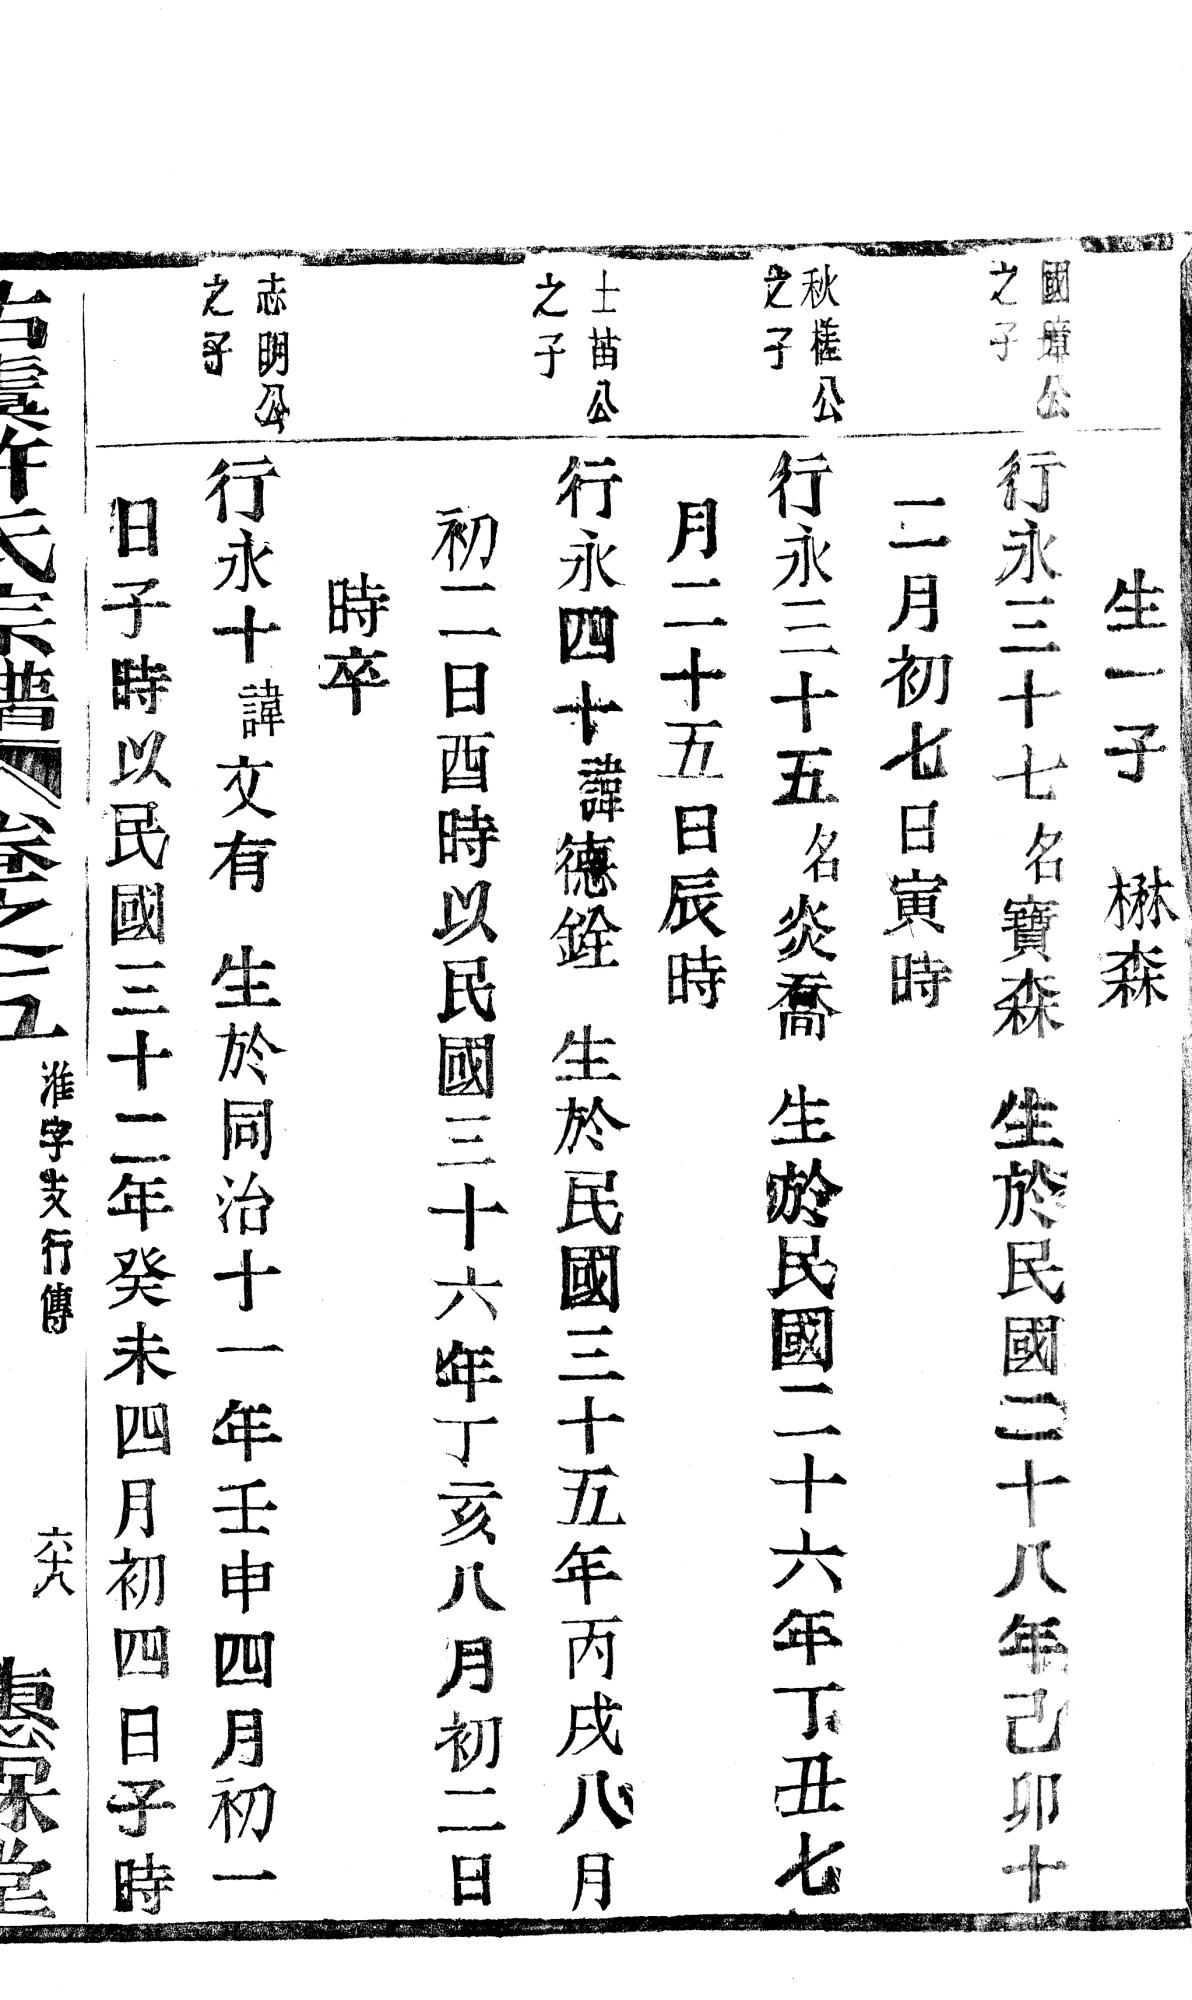 生一子 楙森
國璋公
之子
行永三十七名寶森 生於民國二十八年己卯十
二月初七日寅時
秋槎公
之子
行永三十五名炎喬 生於民國二十六年丁丑七
月二十五日辰時
士苗公
之子
行永四十諱德銓 生於民國三十五年丙戌八月
初二日酉時以民國三十六年丁亥八月初二日
時卒
志明公
之子
行永十諱文有 生於同治十一年壬申四月初一
日子時以民國三十二年癸未四月初四日子時
古虞許氏宗譜 卷之五 淮字支行傳 六十八 惠保堂